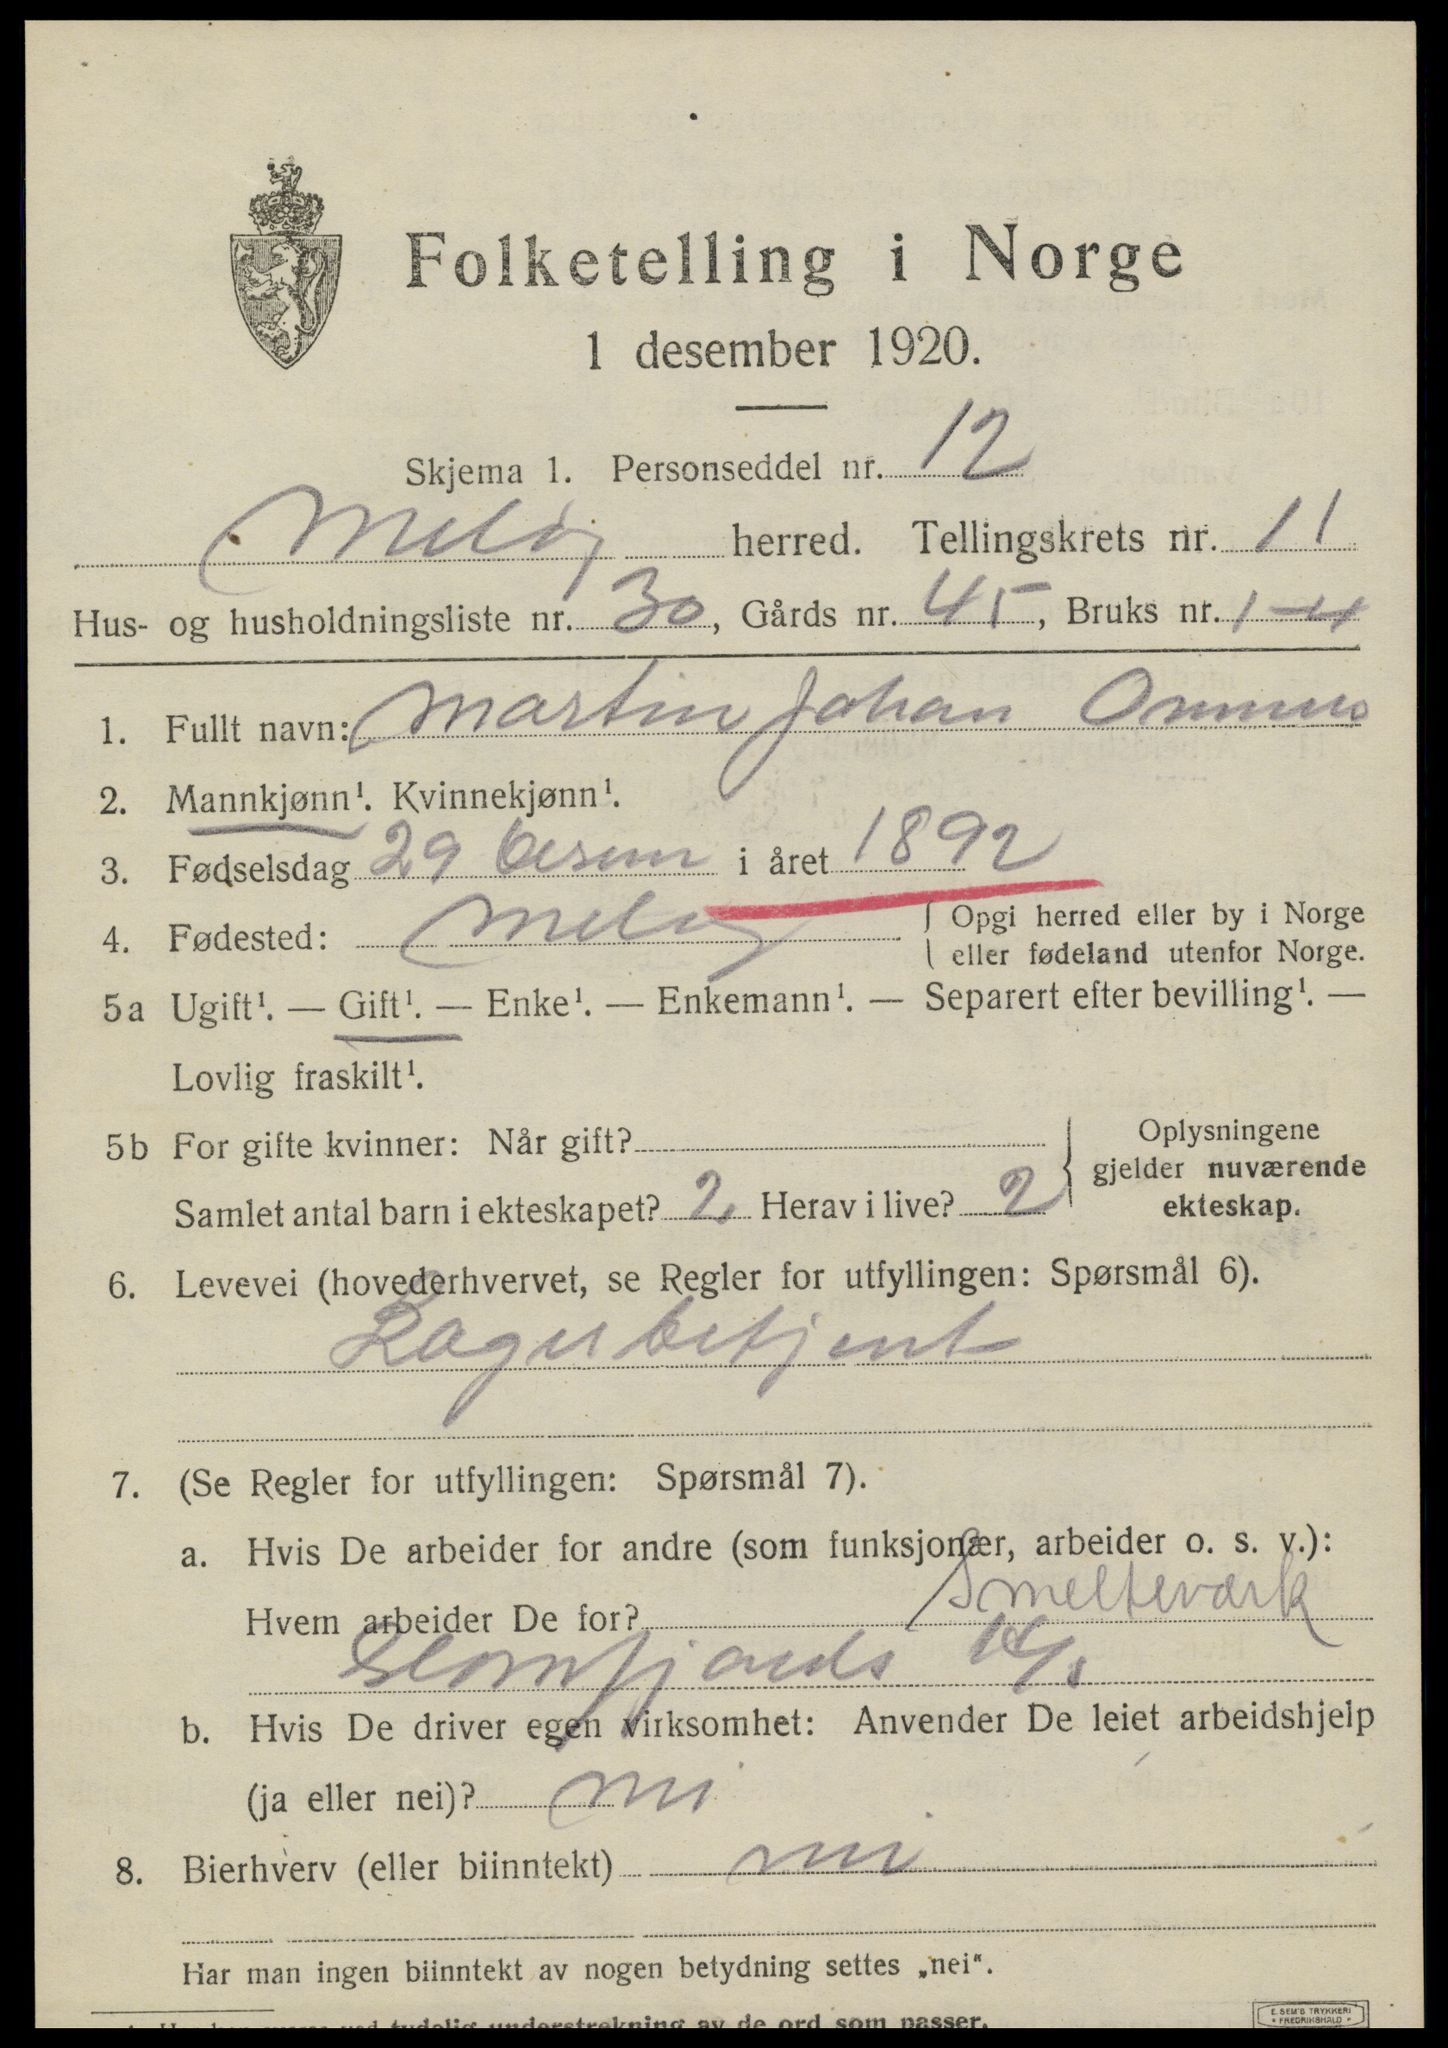 Folketelling i Norge
1 desember 1920.
Skjema 1. Personseddel nr. 12
Meløy herred. Tellingskrets nr. 11
Hus- og husholdningsliste nr. 30, Gårds nr. 45, Bruks nr. 1-4
1. Fullt navn: Martin Johan
2. Mannkjønn¹. Kvinnekjønn¹.
3. Fødselsdag 29 i året 1892
4. Fødested: Meløy { Opgi herred eller by i Norge
eller fødeland utenfor Norge.
5a Ugift¹. — Gift¹. — Enke¹. — Enkemann¹. — Separert efter bevilling¹. —
Lovlig fraskilt¹.
5b For gifte kvinner: Når gift?
Samlet antal barn i ekteskapet? 2. Herav i live? 2
Oplysningene
gjelder nuværende
ekteskap.
6. Levevei (hovederhvervet, se Regler for utfyllingen: Spørsmål 6).
Lagerbetjent
7. (Se Regler for utfyllingen: Spørsmål 7).
a. Hvis De arbeider for andre (som funksjonær, arbeider o. s. v.):
Hvem arbeider De for? Smelteverk
Glomfjords A/s
b. Hvis De driver egen virksomhet: Anvender De leiet arbeidshjelp
(ja eller nei)? nei
8. Bierhverv (eller biinntekt) nei
Har man ingen biinntekt av nogen betydning settes „nei“.
tydelig understrekning av de ord som passer.
E. SEM'S TRYKKERI
FREDRIKSHALD